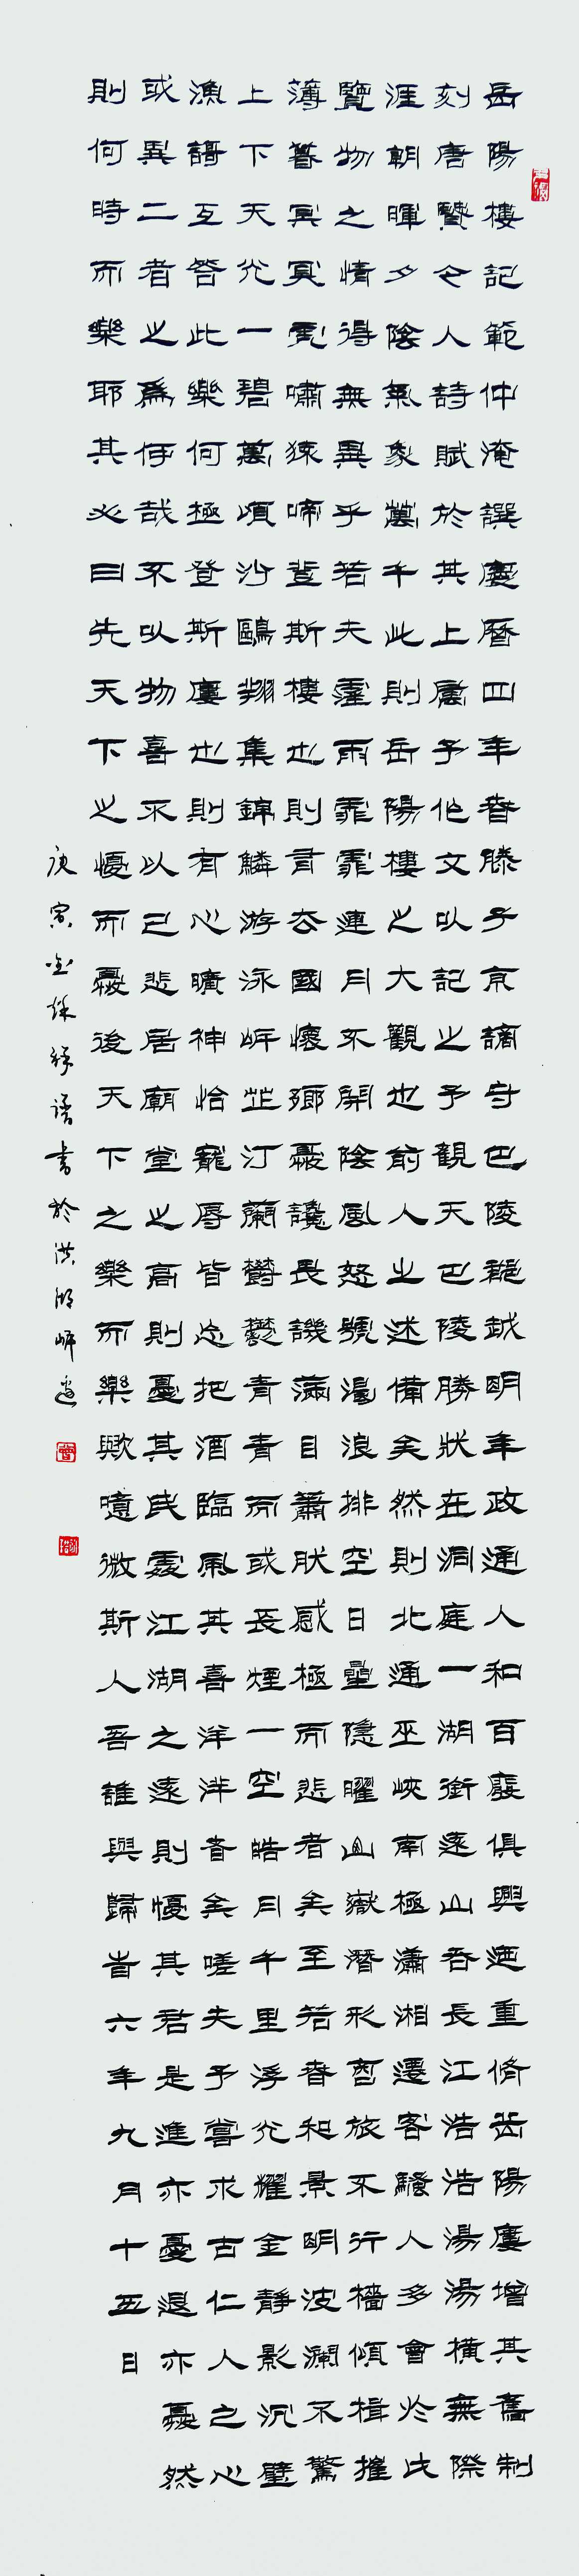 岳陽樓記範仲淹譔慶曆四年春滕子京謫守巴陵郡越明年政通人和百廢俱興廼重脩岳陽樓增其舊制
刻唐賢今人詩賦於其上屬予作文以記之予觀夫巴陵勝狀在洞庭一湖銜遠山吞長江浩浩湯湯橫無際
涯朝暉夕陰氣象萬千此則岳陽樓之大觀也前人之述備矣然則北通巫峽南極瀟湘遷客騷人多會於此
覽物之情得無異乎若夫霪雨霏霏連月不開陰風怒號濁浪排空日星隱曜山嶽潛形商旅不行檣傾楫摧
薄暮冥冥虎嘯猿啼登斯樓也則有去國懷鄉憂讒畏譏滿目蕭然感極而悲者矣至若春和景明波瀾不驚
上下天光一碧萬頃沙鷗翔集錦鱗游泳岸芷汀蘭鬱鬱青青而或長煙一空皓月千里浮光耀金靜影沉璧
漁謌互答此樂何極登斯樓也則有心曠神怡寵辱皆忘把酒臨風其喜洋洋者矣嗟夫予嘗求古仁人之心
或異二者之為何哉不以物喜不以己悲居廟堂之高則憂其民處江湖之遠則憂其君是進亦憂退亦憂然
則何時而樂耶其必曰先天下之憂而憂後天下之樂而樂歟噫微斯人吾誰與歸旹六年九月十五日
庚寅金秋書於洪湖岸邊